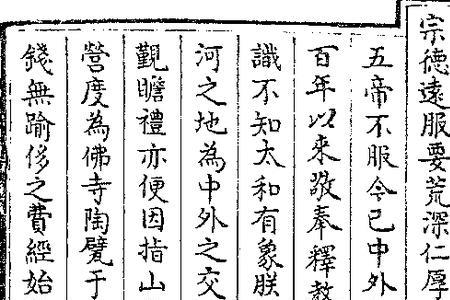 宗德遠服要荒深仁厚
五帝不服今已中外
百年以來敬奉釋教
識不知太和有象朕
河之地為中外之交
觀瞻禮亦便因指山
營度為佛寺陶甓于
錢無踰侈之費經始